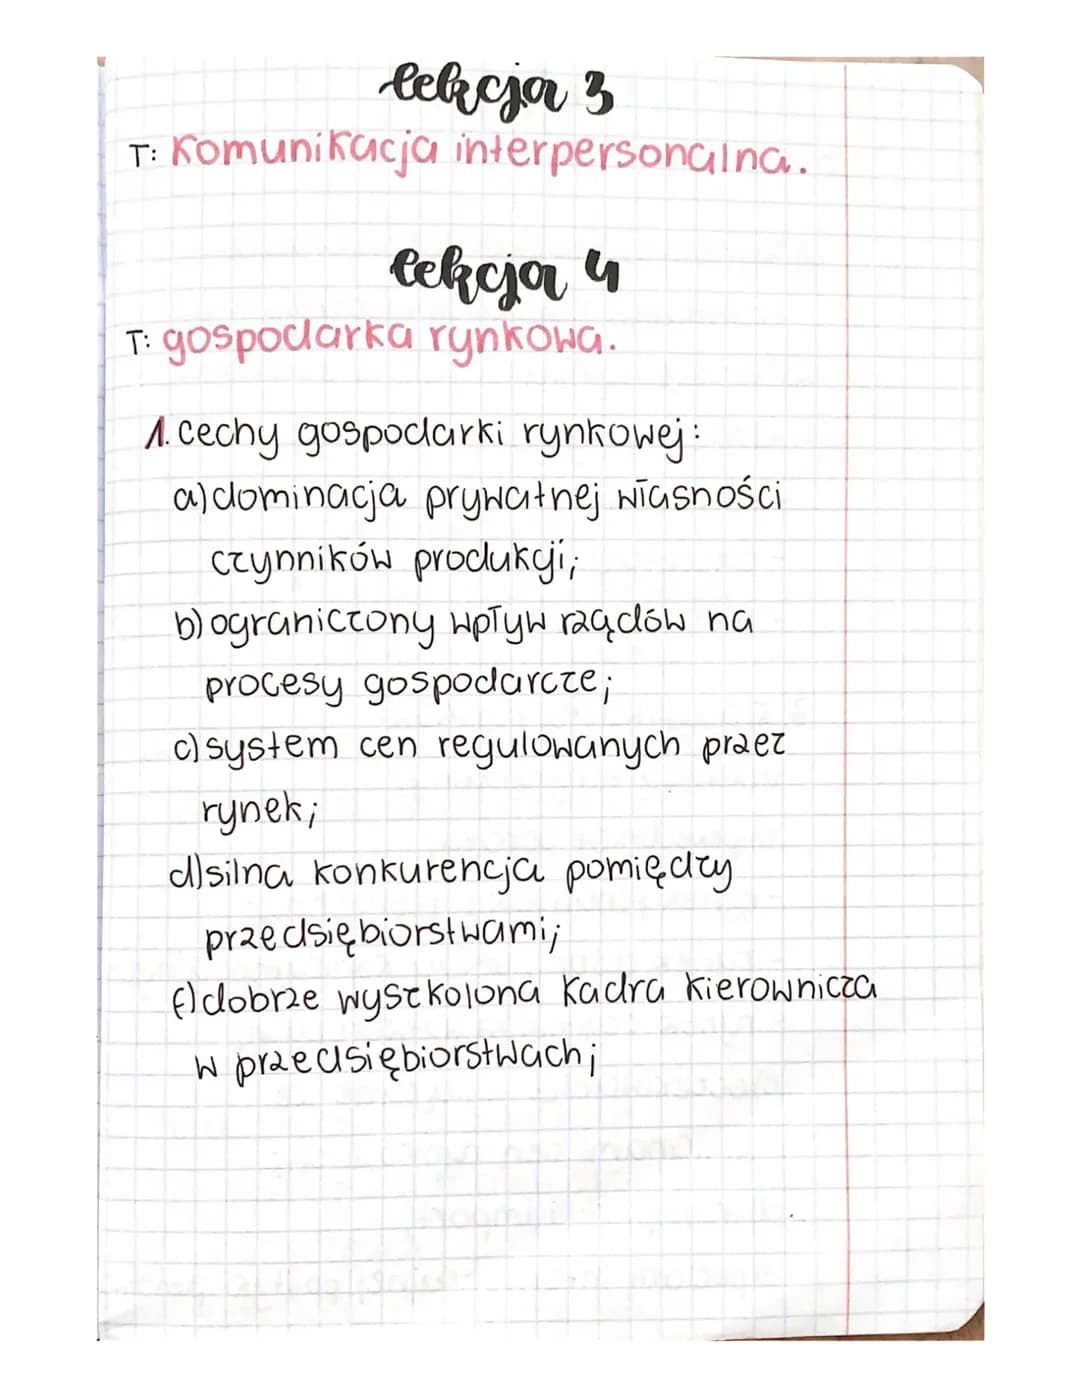 lekcja 3
T: Komunikacja interpersonalna.
lekcja 4
T: gospodarka rynkowa.
1. cechy gospodarki rynkowej:
a) dominacja prywatnej własności
czynników produkcji;
b) ograniczony wpływ rządów na
procesy gospodarcze;
c) system cen regulowanych przez
rynek;
d) silna konkurencja pomiędzy
przedsiębiorstwami;
f) dobrze wyszkolona kadra kierownicza
w przedsiębiorstwach;